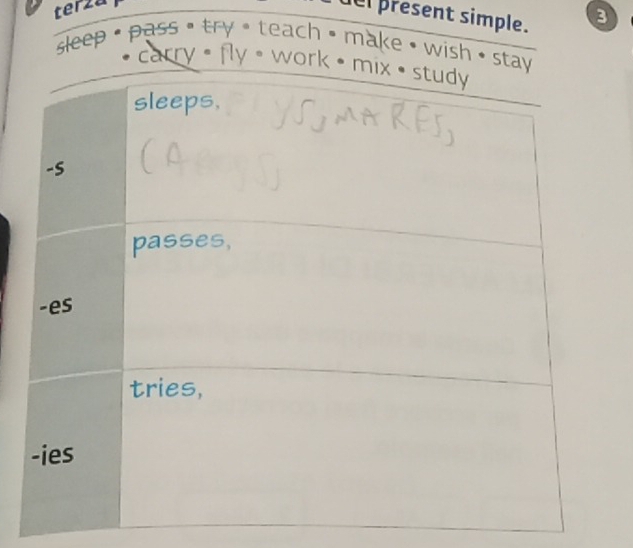 terza present simple.
3
sleep • pass • try • teach • make • wish • stay
• carry • fly • work • mix • study
-s
sleeps,
-es
passes,
-ies
tries,